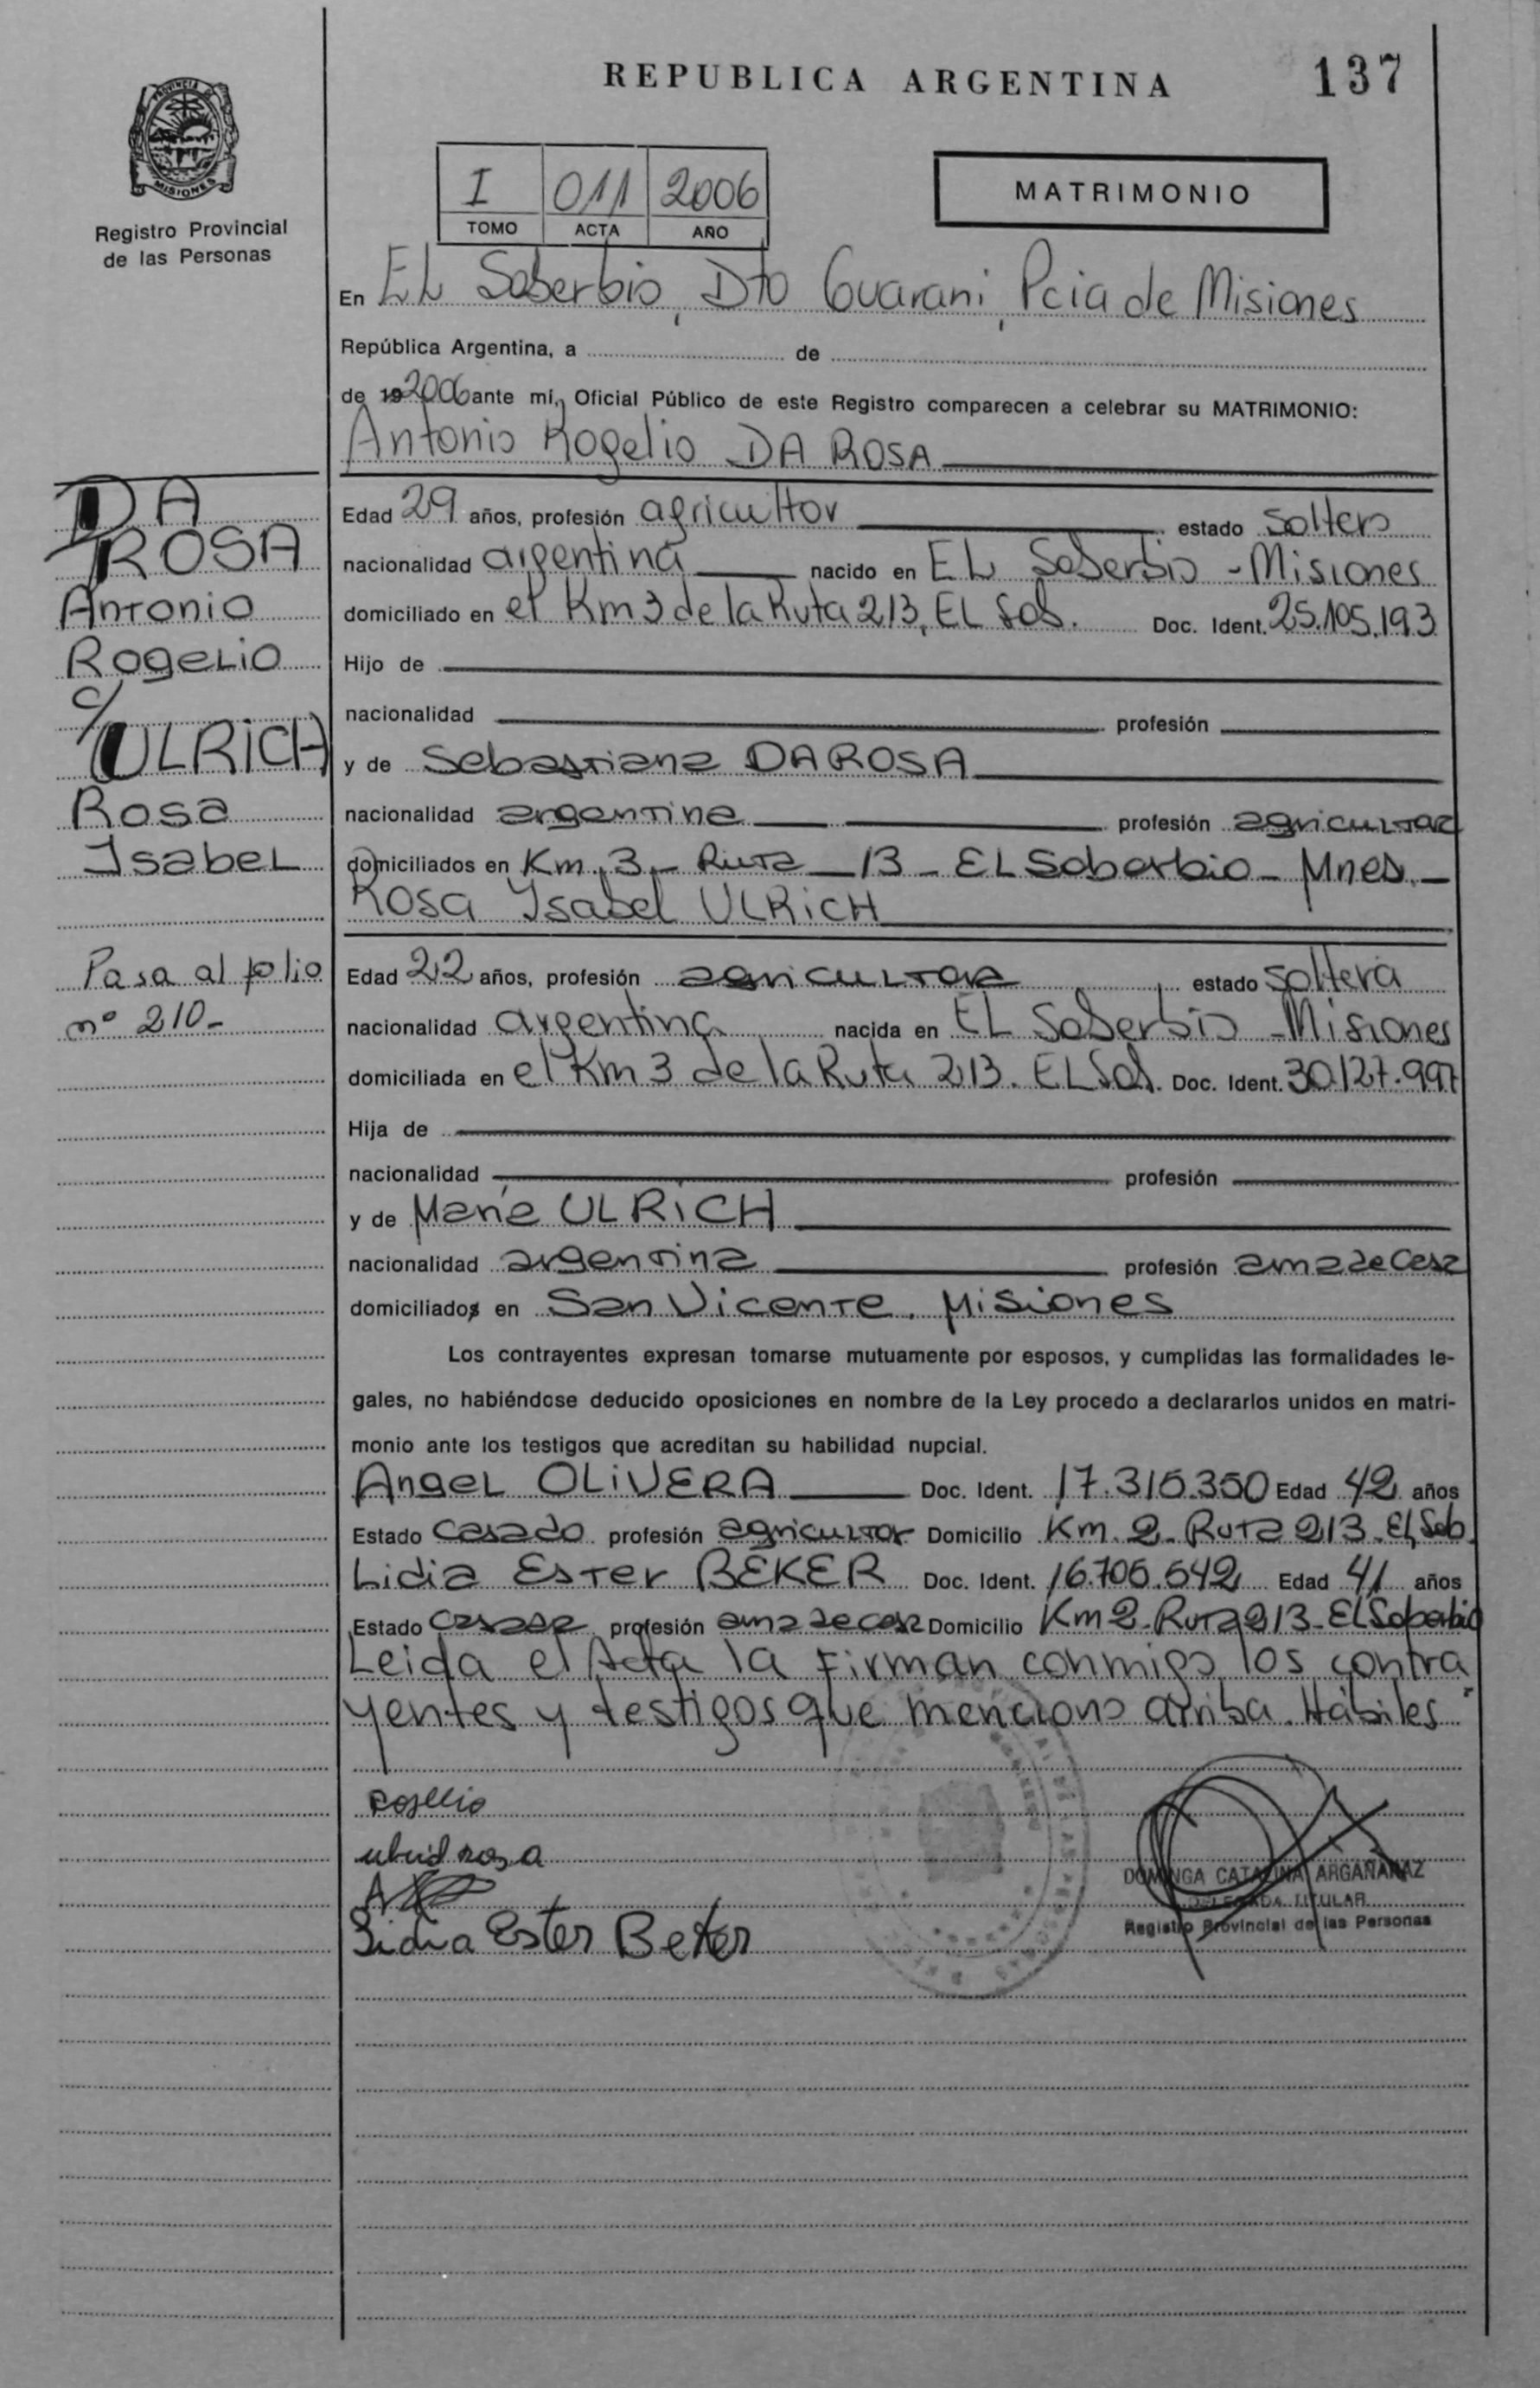 REPUBLICA ARGENTINA
137
PROVINCIA DE
MISIONES
Registro Provincial
de las Personas
I 011 2006
TOMO ACTA AÑO
MATRIMONIO
En EL Soberbio, Dto Guarani, Pcia de Misiones
República Argentina, a de
de 19 2006 ante mí, Oficial Público de este Registro comparecen a celebrar su MATRIMONIO:
Antonio Rogelio DA ROSA
Edad 29 años, profesión agricultor estado soltero
nacionalidad argentina nacido en EL Soberbio - Misiones
domiciliado en el Km 3 de la Ruta 213, EL Sob. Doc. Ident. 25.105.193
Hijo de
nacionalidad profesión
y de Sebastiana DA ROSA
nacionalidad argentina profesión agricultora
domiciliados en Km. 3 - Ruta - 13 - EL Soberbio - Mnes. -
Rosa Isabel ULRICH
Edad 22 años, profesión agricultora estado soltera
nacionalidad argentina nacida en EL Soberbio - Misiones
domiciliada en el Km 3 de la Ruta 213. EL Sob. Doc. Ident. 30.127.997
Hija de
nacionalidad profesión
y de María ULRICH
nacionalidad argentina profesión ama de casa
domiciliados en San Vicente. Misiones
Los contrayentes expresan tomarse mutuamente por esposos, y cumplidas las formalidades le-
gales, no habiéndose deducido oposiciones en nombre de la Ley procedo a declararlos unidos en matri-
monio ante los testigos que acreditan su habilidad nupcial.
Angel OLIVERA Doc. Ident. 17.315.350 Edad 42 años
Estado casado profesión agricultor Domicilio Km. 2 - Ruta 213 - EL Sob.
Lidia Ester BEKER Doc. Ident. 16.705.542 Edad 41 años
Estado casada profesión ama de casa Domicilio Km 2 - Ruta 213 - EL Soberbio
Leida el Acta la Firman conmigo los contra
yentes y testigos que menciono arriba. Hábiles."
Rogelio
ulrich rosa
Lidia Ester Beker
DOMINGA CATALINA ARGAÑARAZ
DELEGADA TITULAR
Registro Provincial de las Personas
DA
ROSA
Antonio
Rogelio
c/
ULRICH
Rosa
Isabel
Pasa al folio
nº 210-